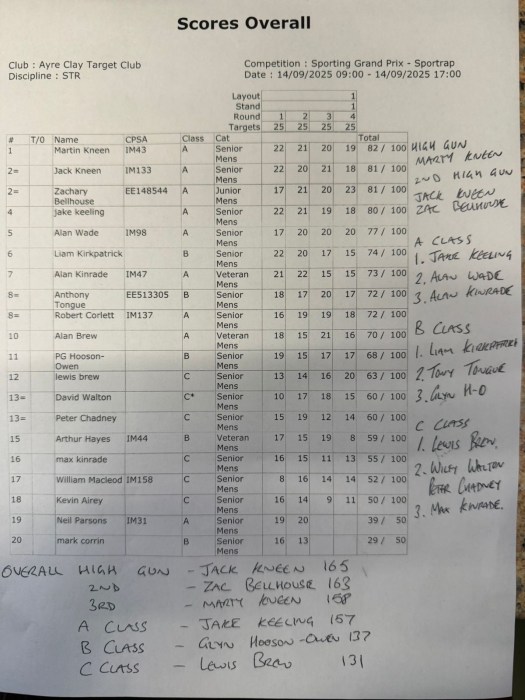 Scores Overall
Club : Ayre Clay Target Club
Discipline : STR
Competition : Sporting Grand Prix - Sportrap
Date : 14/09/2025 09:00 - 14/09/2025 17:00
Layout 1
Stand 1
Round 1 2 3 4
Targets 25 25 25 25
# T/O Name CPSA Class Cat Total
1 Martin Kneen IM43 A Senior Mens 22 21 20 19 82 / 100
2= Jack Kneen IM133 A Senior Mens 22 20 21 18 81 / 100
2= Zachary Bellhouse EE148544 A Junior Mens 17 21 20 23 81 / 100
4 jake keeling A Senior Mens 22 21 19 18 80 / 100
5 Alan Wade IM98 A Senior Mens 17 20 20 20 77 / 100
6 Liam Kirkpatrick B Senior Mens 22 20 17 15 74 / 100
7 Alan Kinrade IM47 A Veteran Mens 21 22 15 15 73 / 100
8= Anthony Tongue EE513305 B Senior Mens 18 17 20 17 72 / 100
8= Robert Corlett IM137 A Senior Mens 16 19 19 18 72 / 100
10 Alan Brew A Veteran Mens 18 15 21 16 70 / 100
11 PG Hooson-Owen B Senior Mens 19 15 17 17 68 / 100
12 lewis brew C Senior Mens 13 14 16 20 63 / 100
13= David Walton C* Senior Mens 10 17 18 15 60 / 100
13= Peter Chadney C Senior Mens 15 19 12 14 60 / 100
15 Arthur Hayes IM44 B Veteran Mens 17 15 19 8 59 / 100
16 max kinrade C Senior Mens 16 15 11 13 55 / 100
17 William Macleod IM158 C Senior Mens 8 16 14 14 52 / 100
18 Kevin Airey C Senior Mens 16 14 9 11 50 / 100
19 Neil Parsons IM31 A Senior Mens 19 20 39 / 50
20 mark corrin B Senior Mens 16 13 29 / 50
HIGH GUN
MARTY KNEEN
2ND HIGH GUN
JACK KNEEN
ZAC BELLHOUSE
A CLASS
1. JAKE KEELING
2. ALAN WADE
3. ALAN KINRADE
B CLASS
1. LIAM KIRKPATRICK
2. TONY TONGUE
3. GLYN H-O
C CLASS
1. LEWIS BREW.
2. WILEY WALTON
PETER CHADNEY
3. MAX KINRADE.
OVERALL HIGH GUN - JACK KNEEN 165
2ND - ZAC BELLHOUSE 163
3RD - MARTY KNEEN 158
A CLASS - JAKE KEELING 157
B CLASS - GLYN HOOSON-OWEN 137
C CLASS - LEWIS BREW 131